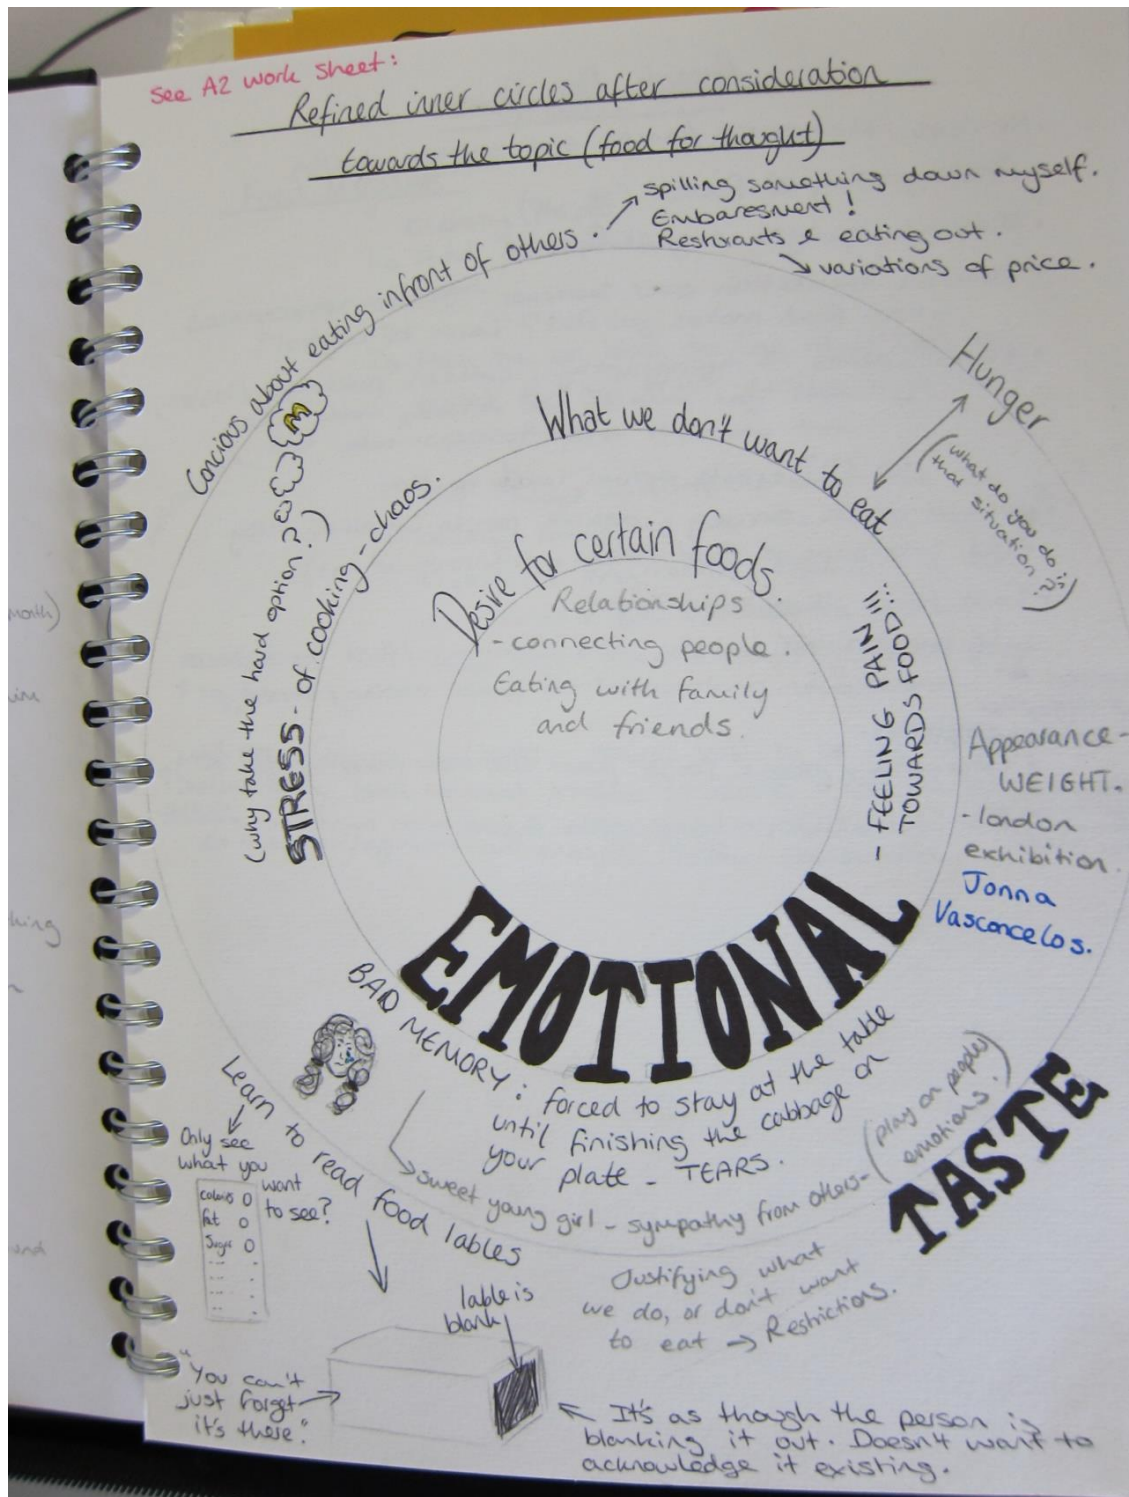 See A2 work sheet:
Refined inner circles after consideration
towards the topic (food for thought)
Concious about eating infront of others.
spilling something down myself.
Embaresment!
Resturants & eating out.
variations of price.
Hunger
(what do you do in
that situation??)
What we don't want to eat
- FEELING PAIN!!!!
TOWARDS FOOD!!!
(why take the hard option??)
M
STRESS - of cooking - chaos.
Desire for certain foods.
Relationships
- connecting people.
Eating with family
and friends.
Appearance -
WEIGHT.
- london
exhibition.
Jonna
Vasconcelos.
EMOTIONAL
TASTE
BAD MEMORY: forced to stay at the table
until finishing the cabbage on
your plate - TEARS.
sweet young girl - sympathy from others - (play on people
emotions.)
Learn to read food lables
Only see
what you
want
to see?
calories 0
fat 0
Sugar 0
Justifying what
we do, or don't want
to eat → Restrictions.
lable is
blank
"You can't
just forget
it's there."
It's as though the person is
blanking it out. Doesn't want to
acknowledge it existing.
month)
hing